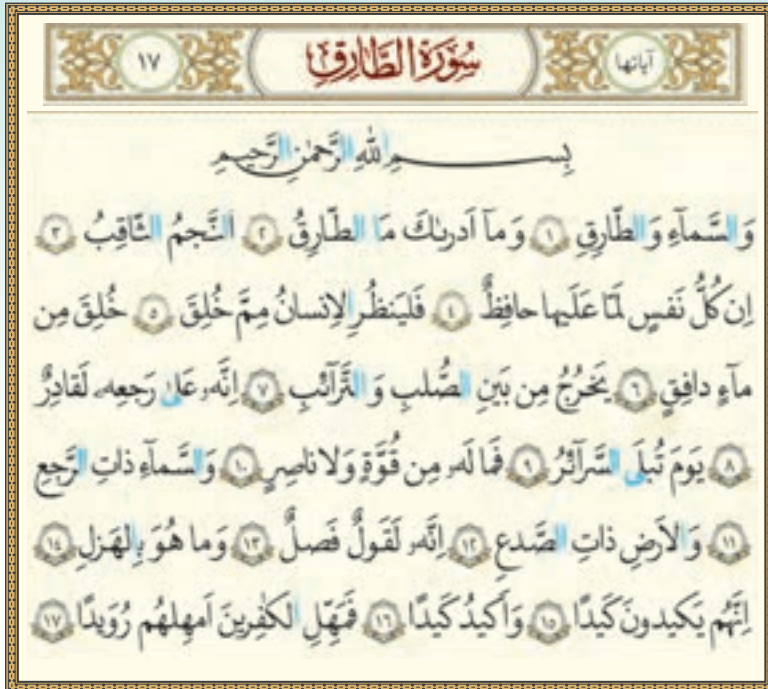 آیاتها سُورَةُ الطَّارِقِ ١٧
بِسمِ اللهِ الرَّحمٰنِ الرَّحیمِ
وَ السَّمآءِ وَ الطّارِقِ ﴿١﴾ وَ مآ اَدرىٰكَ مَا الطّارِقُ ﴿٢﴾ اَلنَّجمُ الثّاقِبُ ﴿٣﴾
اِن كُلُّ نَفسٍ لَمّا عَلَیها حافِظٌ ﴿٤﴾ فَلیَنظُرِ الاِنسانُ مِمَّ خُلِقَ ﴿٥﴾ خُلِقَ مِن
مآءٍ دافِقٍ ﴿٦﴾ یَخرُجُ مِن بَینِ الصُّلبِ وَ التَّرآئبِ ﴿٧﴾ اِنَّه، عَلىٰ رَجعِه، لَقادِرٌ
﴿٨﴾ یَومَ تُبلَى السَّرآئرُ ﴿٩﴾ فَما لَه، مِن قُوَّةٍ وَ لا ناصِرٍ ﴿١٠﴾ وَ السَّمآءِ ذاتِ الرَّجعِ
﴿١١﴾ وَ الاَرضِ ذاتِ الصَّدعِ ﴿١٢﴾ اِنَّه، لَقَولٌ فَصلٌ ﴿١٣﴾ وَ ما هُوَ بِالهَزلِ ﴿١٤﴾
اِنَّهُم یَكیدونَ كَیدًا ﴿١٥﴾ وَ اَكیدُ كَیدًا ﴿١٦﴾ فَمَهِّلِ الكٰفِرینَ اَمهِلهُم رُوَیدًا ﴿١٧﴾